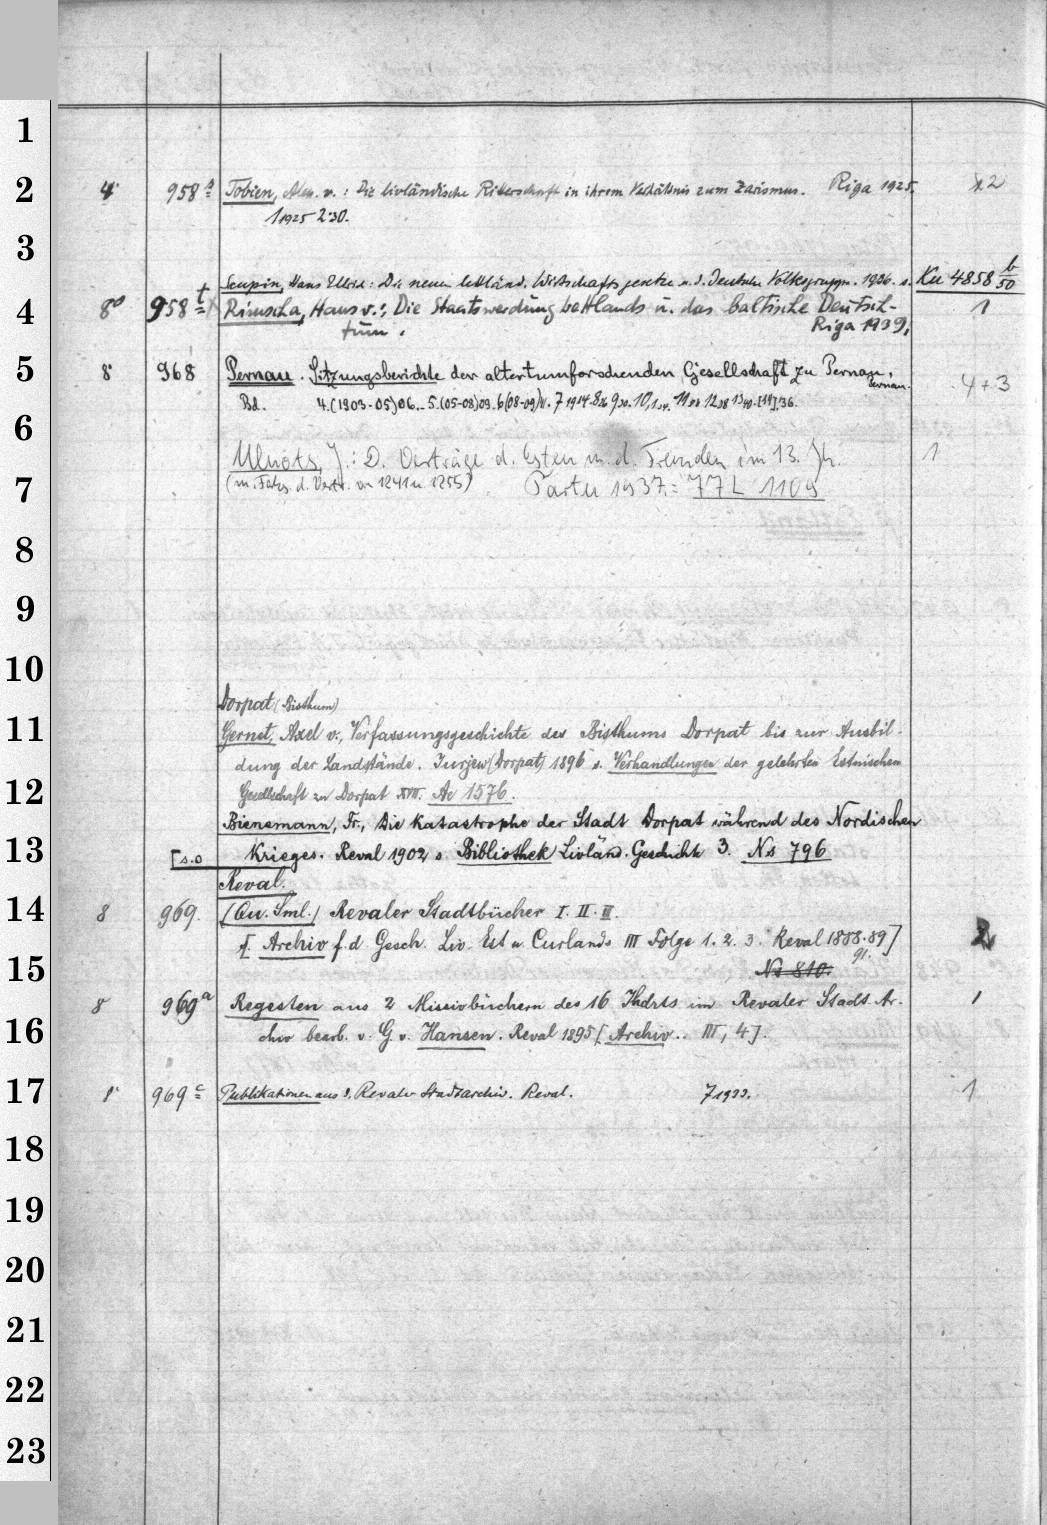 1
2
4° 958 Tobien, Alex. v.: Die livländische Ritterschaft in ihrem Verhältnis zum Zarismus. Riga 1925. 2
1 1925 2 30.
3
Scupin, Hans Ulrich: Die neuen lettländ. Wirtschaftsgesetze u. d. Deutsche Volksgruppe. 1936. s. Ku 4858 b/50
4
8° 958 t Rimscha, Hans v.: Die Staatswerdung Lettlands u. das baltische Deutsch- 1
tum. Riga 1939.
5
8° 968 Pernau. Sitzungsberichte der altertumforschenden Gesellschaft zu Pernau. Pernau. 4+3
Bd. 4.(1903-05)06. 5.(05-08)09. 6(08-09)
6
J.: D. Verträge d. Esten m. d. Fremden im 13. Jh. 1
7
(m. Faks. d. Vertr. von 1241 u. 1255) Tartu 1937: 77 L 1109
8
9
10
Dorpat (Bisthum)
11
Gernet, Axel v., Verfassungsgeschichte des Bisthums Dorpat bis zur Ausbil-
dung der Landstände. Jurjew (Dorpat) 1896 s. Verhandlungen der gelehrten Estnischen
12
Gesellschaft zu Dorpat XVII. Ac 1576.
Bienemann, Fr., Die Katastrophe der Stadt Dorpat während des Nordischen
13
[s.o Krieges. Reval 1902 s. Bibliothek Livländ. Geschichte 3. Ns 796
Reval.
14
8 969. (Qu. Sml.) Revaler Stadtbücher I. II. III.
[Archiv f. d. Gesch. Liv- Est u. Curlands III Folge 1. 2. 3. Reval 1888-89] 2
91.
15
Ns 810.
8° 969 a Regesten aus 2 Missivbüchern des 16 Jhdrts im Revaler Stadt Ar- 1
16
chiv bearb. v. G. v. Hansen. Reval 1895 [Archiv.. III, 4].
17
8° 969 c Publikationen aus d. Revaler Stadtarchiv. Reval. 7 1933. 1
18
19
20
21
22
23